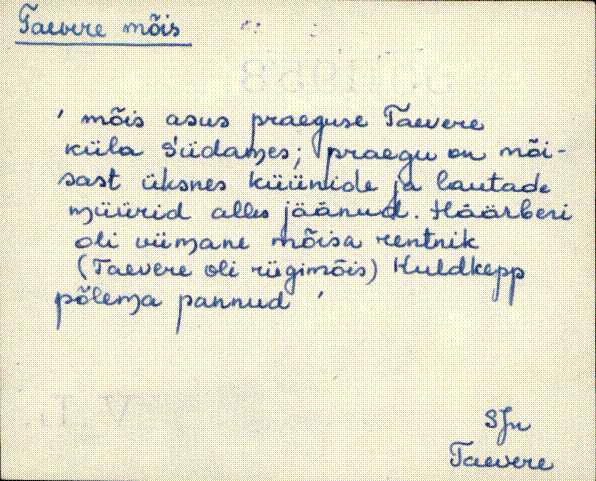 Taevere mõis
' mõis asus praeguse Taevere
küla südames; praegu on mõi-
sast üksnes küünide ja lautade
müürid alles jäänud. Häärberi
oli viimane mõisa rentnik
(Taevere oli riigimõis) Kuldkepp
põlema pannud '
SJn
Taevere